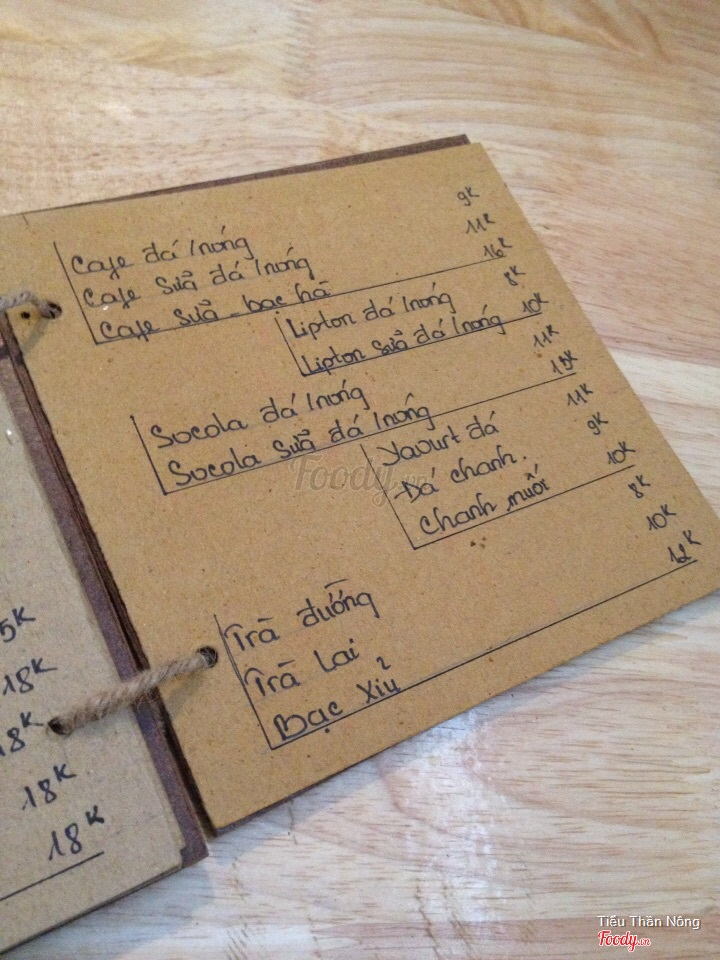 Cafe đá/nóng 9K
Cafe sữa đá/nóng 11K
Cafe sữa - bạc hà 16K
Lipton đá/nóng 8K
Lipton sữa đá/nóng 10K
Socola đá/nóng 11K
Socola sữa đá/nóng 15K
Yaourt đá 11K
Đá chanh. 9K
Chanh muối 10K
Trà đường 8K
Trà Lài 10K
Bạc Xỉu 12K
5K
18K
18K
18K
18K
Foody.vn
Tiểu Thần Nông
Foody.vn